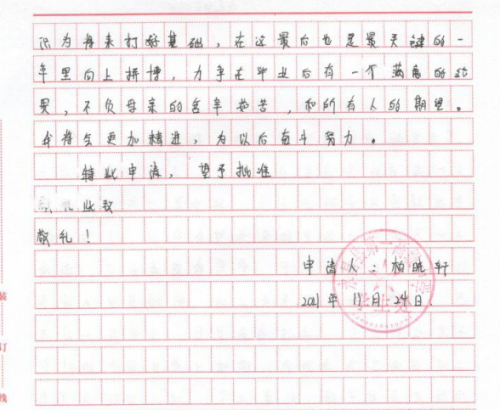 为将来打好基础，在这最后也是最关键的一
年里向上拼搏，力争在毕业后有一个满意的结
果，不负母亲的含辛茹苦，和所有人的期望。
我将会更加精进，为以后奋斗努力。
特此申请，望予批准
此致
敬礼！
申请人：柏晓轩
2021年11月24日.
装
订
线